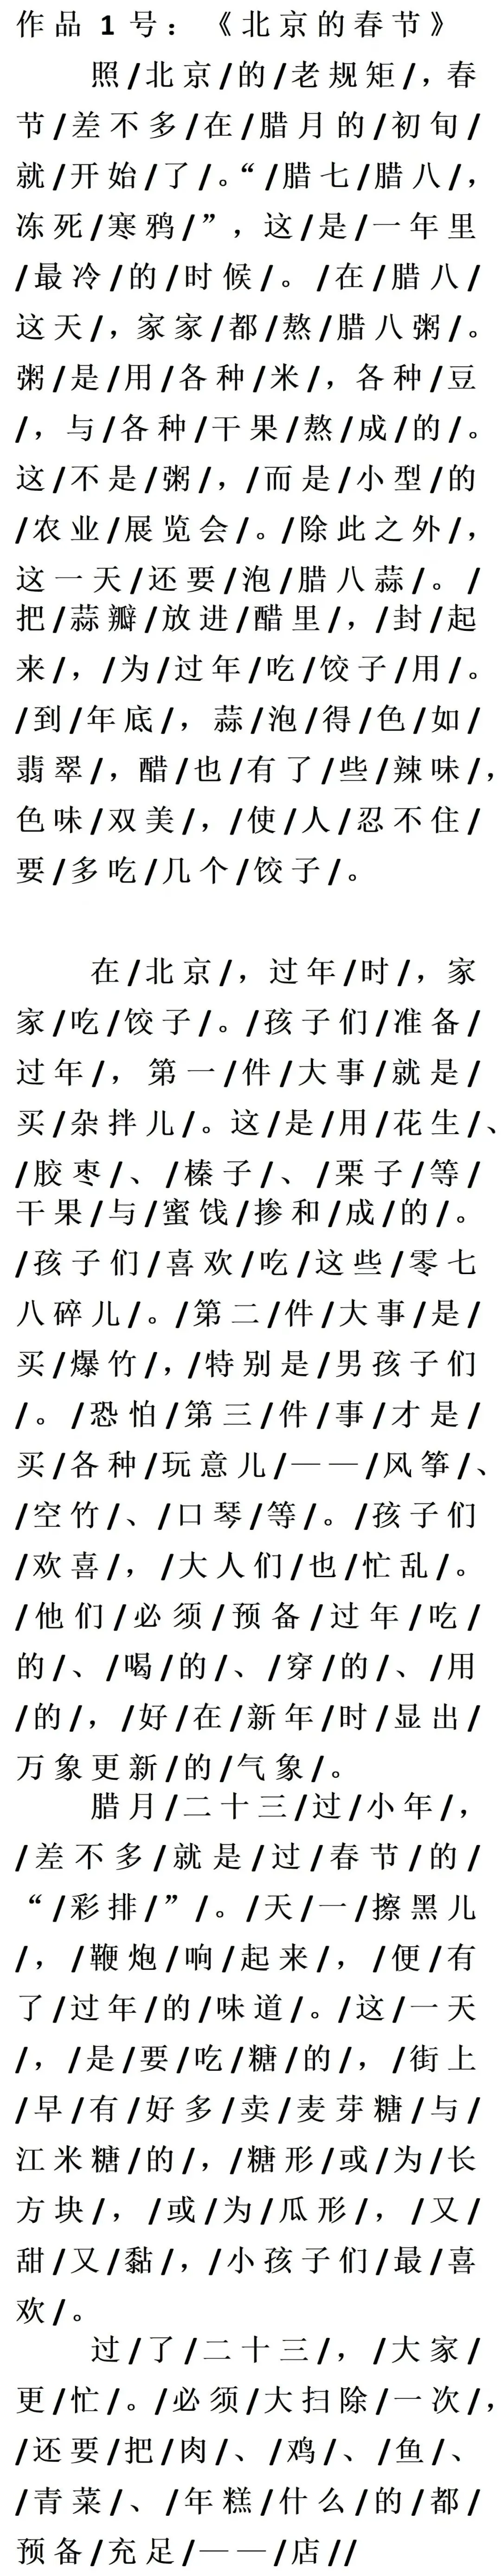 作品 1 号：《北京的春节》
照/北京/的/老规矩/，春
节/差不多/在/腊月的/初旬/
就/开始/了/。“/腊七/腊八/，
冻死/寒鸦/”，这/是/一年里
/最冷/的/时候/。/在/腊八/
这天/，家家/都/熬/腊八粥/。
粥/是/用/各种/米/，各种/豆
/，与/各种/干果/熬/成/的/。
这/不是/粥/，/而是/小型/的
/农业/展览会/。/除此之外/，
这一天/还要/泡/腊八蒜/。/
把/蒜瓣/放进/醋里/，/封/起
来/，/为/过年/吃/饺子/用/。
/到/年底/，蒜/泡/得/色/如/
翡翠/，醋/也/有了/些/辣味/，
色味/双美/，/使/人/忍不住/
要/多吃/几个/饺子/。
在/北京/，过年/时/，家
家/吃/饺子/。/孩子们/准备/
过年/，第一/件/大事/就是/
买/杂拌儿/。这/是/用/花生/、
/胶枣/、/榛子/、/栗子/等/
干果/与/蜜饯/掺和/成/的/。
/孩子们/喜欢/吃/这些/零七
八碎儿/。/第二/件/大事/是/
买/爆竹/，/特别是/男孩子们
/。/恐怕/第三/件/事/才是/
买/各种/玩意儿/——/风筝/、
/空竹/、/口琴/等/。/孩子们
/欢喜/，/大人们/也/忙乱/。
/他们/必须/预备/过年/吃/
的/、/喝/的/、/穿/的/、/用
/的/，/好/在/新年/时/显出/
万象更新/的/气象/。
腊月/二十三/过/小年/，
/差不多/就是/过/春节/的/
“/彩排/”/。/天/一/擦黑儿
/，/鞭炮/响/起来/，/便/有
了/过年/的/味道/。/这/一天
/，/是/要/吃/糖/的/，/街上
/早/有/好多/卖/麦芽糖/与/
江米糖/的/，/糖形/或/为/长
方块/，/或/为/瓜形/，/又/
甜/又/黏/，/小孩子们/最/喜
欢/。
过/了/二十三/，/大家/
更/忙/。/必须/大扫除/一次/，
/还要/把/肉/、/鸡/、/鱼/、
/青菜/、/年糕/什么/的/都/
预备/充足/——/店//